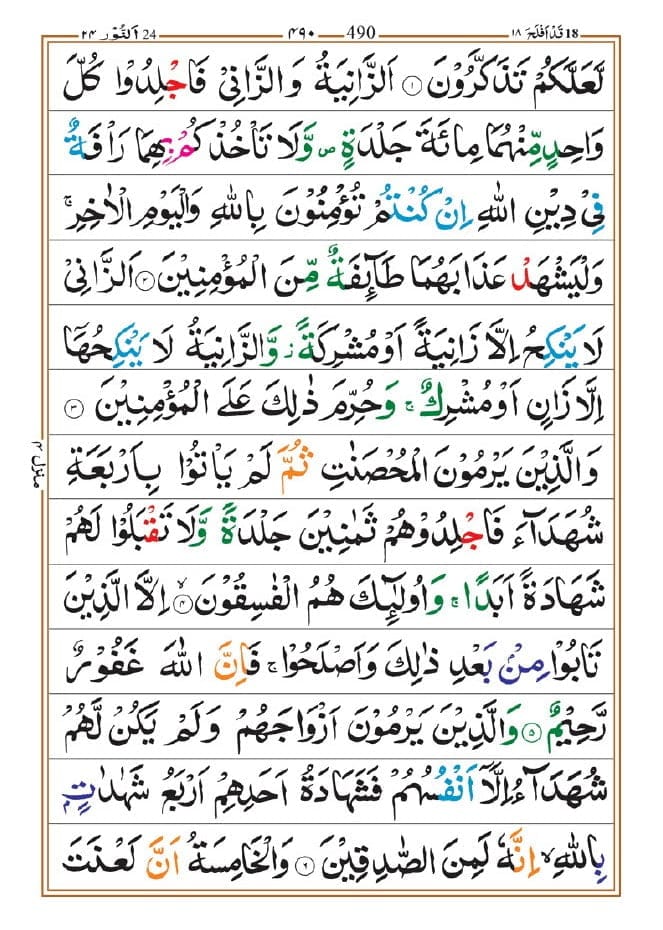 18 قَدْ اَفْلَحَ ١٨ 490 ٤٩٠ 24 اَلنُّوْر ٢٤
لَّعَلَّكُمْ تَذَكَّرُوْنَ ۝١ اَلزَّانِيَةُ وَالزَّانِيْ فَاجْلِدُوْا كُلَّ
وَاحِدٍ مِّنْهُمَا مِائَةَ جَلْدَةٍ ۪ وَّلَا تَاْخُذْكُمْ بِهِمَا رَاْفَةٌ
فِيْ دِيْنِ اللّٰهِ اِنْ كُنْتُمْ تُؤْمِنُوْنَ بِاللّٰهِ وَالْيَوْمِ الْاٰخِرِ ۚ
وَلْيَشْهَدْ عَذَابَهُمَا طَآئِفَةٌ مِّنَ الْمُؤْمِنِيْنَ ۝٢ اَلزَّانِيْ
لَا يَنْكِحُ اِلَّا زَانِيَةً اَوْ مُشْرِكَةً ؗ وَّالزَّانِيَةُ لَا يَنْكِحُهَاۤ
اِلَّا زَانٍ اَوْ مُشْرِكٌ ۚ وَحُرِّمَ ذٰلِكَ عَلَى الْمُؤْمِنِيْنَ ۝٣
وَالَّذِيْنَ يَرْمُوْنَ الْمُحْصَنٰتِ ثُمَّ لَمْ يَاْتُوْا بِاَرْبَعَةِ
شُهَدَآءَ فَاجْلِدُوْهُمْ ثَمٰنِيْنَ جَلْدَةً وَّلَا تَقْبَلُوْا لَهُمْ
شَهَادَةً اَبَدًا ۚ وَاُولٰٓئِكَ هُمُ الْفٰسِقُوْنَ ۝٤ۙ اِلَّا الَّذِيْنَ
تَابُوْا مِنْۢ بَعْدِ ذٰلِكَ وَاَصْلَحُوْا ۚ فَاِنَّ اللّٰهَ غَفُوْرٌ
رَّحِيْمٌ ۝٥ وَالَّذِيْنَ يَرْمُوْنَ اَزْوَاجَهُمْ وَلَمْ يَكُنْ لَّهُمْ
شُهَدَآءُ اِلَّاۤ اَنْفُسُهُمْ فَشَهَادَةُ اَحَدِهِمْ اَرْبَعُ شَهٰدٰتٍۭ
بِاللّٰهِ ۙ اِنَّهٗ لَمِنَ الصّٰدِقِيْنَ ۝٦ وَالْخَامِسَةُ اَنَّ لَعْنَتَ
منزل ٤